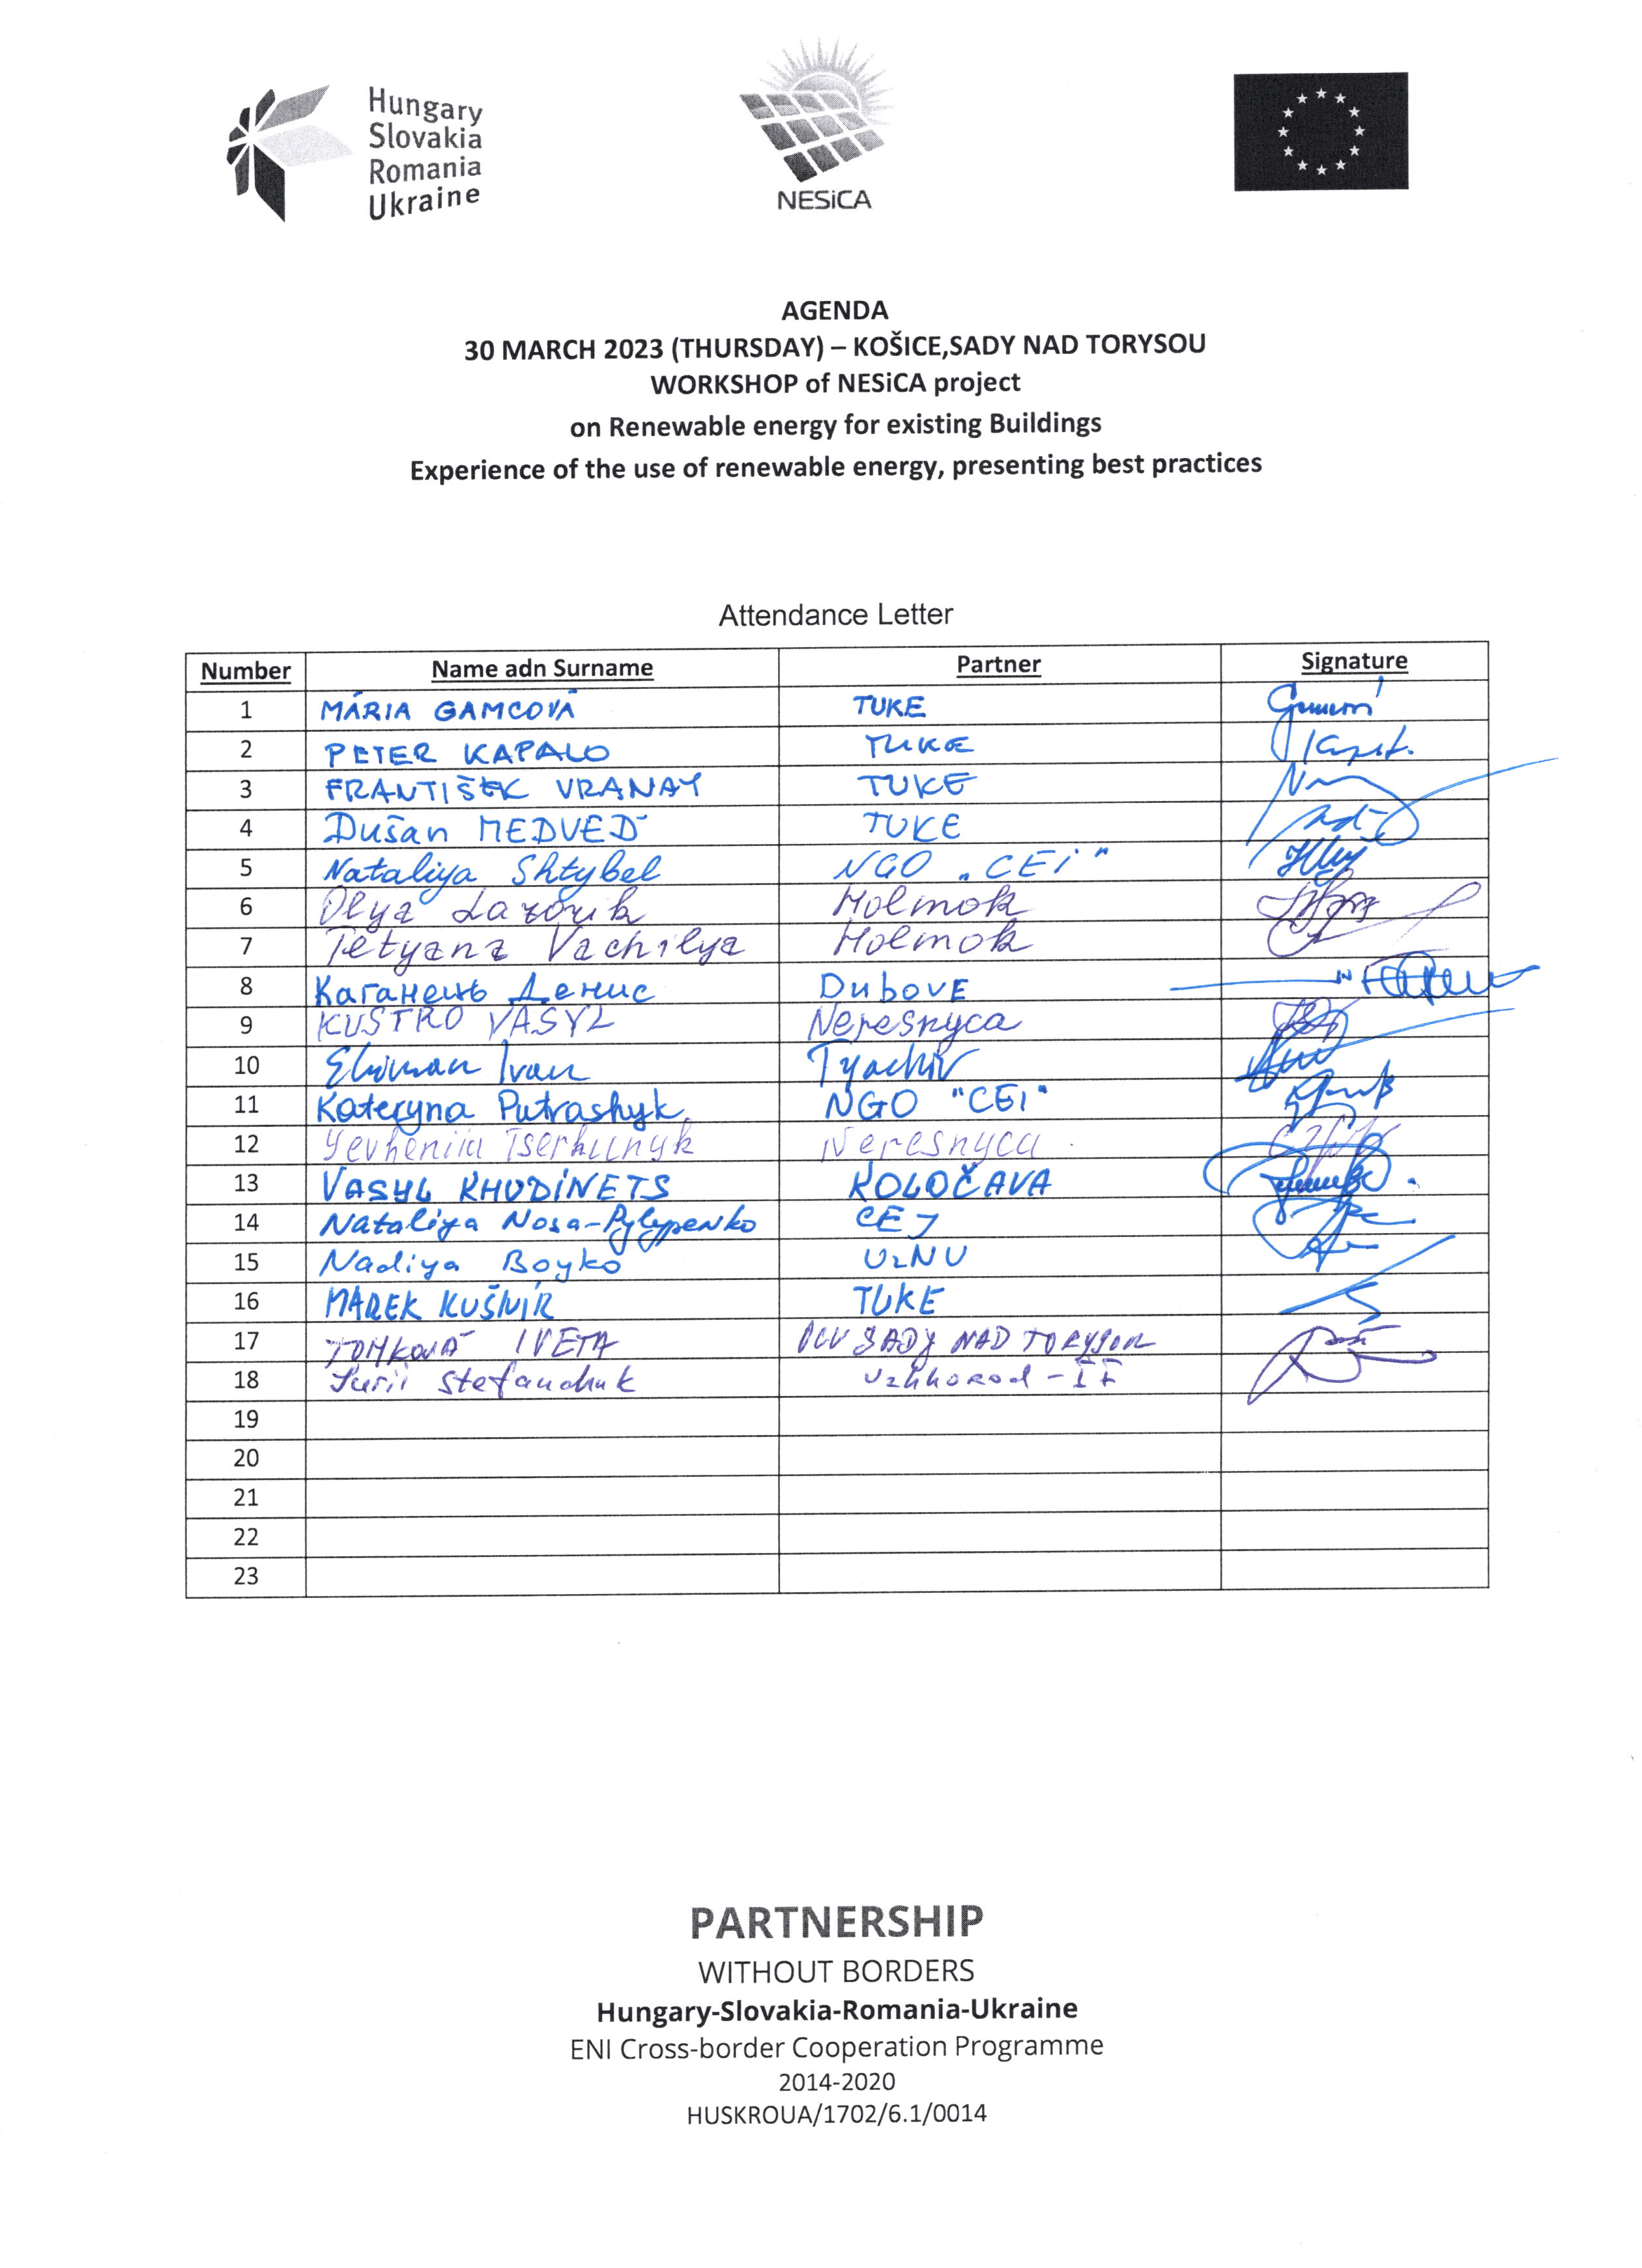 Hungary
Slovakia
Romania
Ukraine
NESiCA
AGENDA
30 MARCH 2023 (THURSDAY) – KOŠICE,SADY NAD TORYSOU
WORKSHOP of NESiCA project
on Renewable energy for existing Buildings
Experience of the use of renewable energy, presenting best practices
Attendance Letter
Number Name adn Surname Partner Signature
1 MÁRIA GAMCOVÁ TUKE
2 PETER KAPALO TUKE
3 FRANTIŠEK VRANAY TUKE
4 Dušan MEDVEĎ TUKE
5 Nataliya Shtybel NGO „CEI"
6 Olya Lazorik Holmok
7 Tetyana Vachilya Holmok
8 Каганець Денис Dubove
9 KUSTRO VASYL Neresnyca
10 Ivan Tyachiv
11 Kateryna Putrashyk NGO "CEI"
12 Yevheniia Neresnyca
13 VASYL KHUDINETS KOLOČAVA
14 Nataliya Nosa-Pylypenko CEI
15 Nadiya Boyko UzNU
16 MAREK KUŠNÍR TUKE
17 TOMKOVÁ IVETA SADY NAD TORYSOU
18 Iurii Stefanchuk Uzhhorod -
19
20
21
22
23
PARTNERSHIP
WITHOUT BORDERS
Hungary-Slovakia-Romania-Ukraine
ENI Cross-border Cooperation Programme
2014-2020
HUSKROUA/1702/6.1/0014